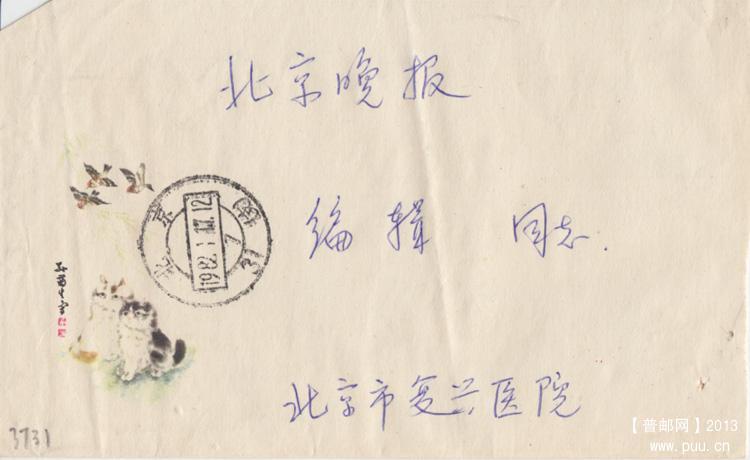 北京晚报
编辑 同志.
北京
1982.1.17.12
7
北京市复兴医院
3731
【普邮网】2013
www.puu.cn